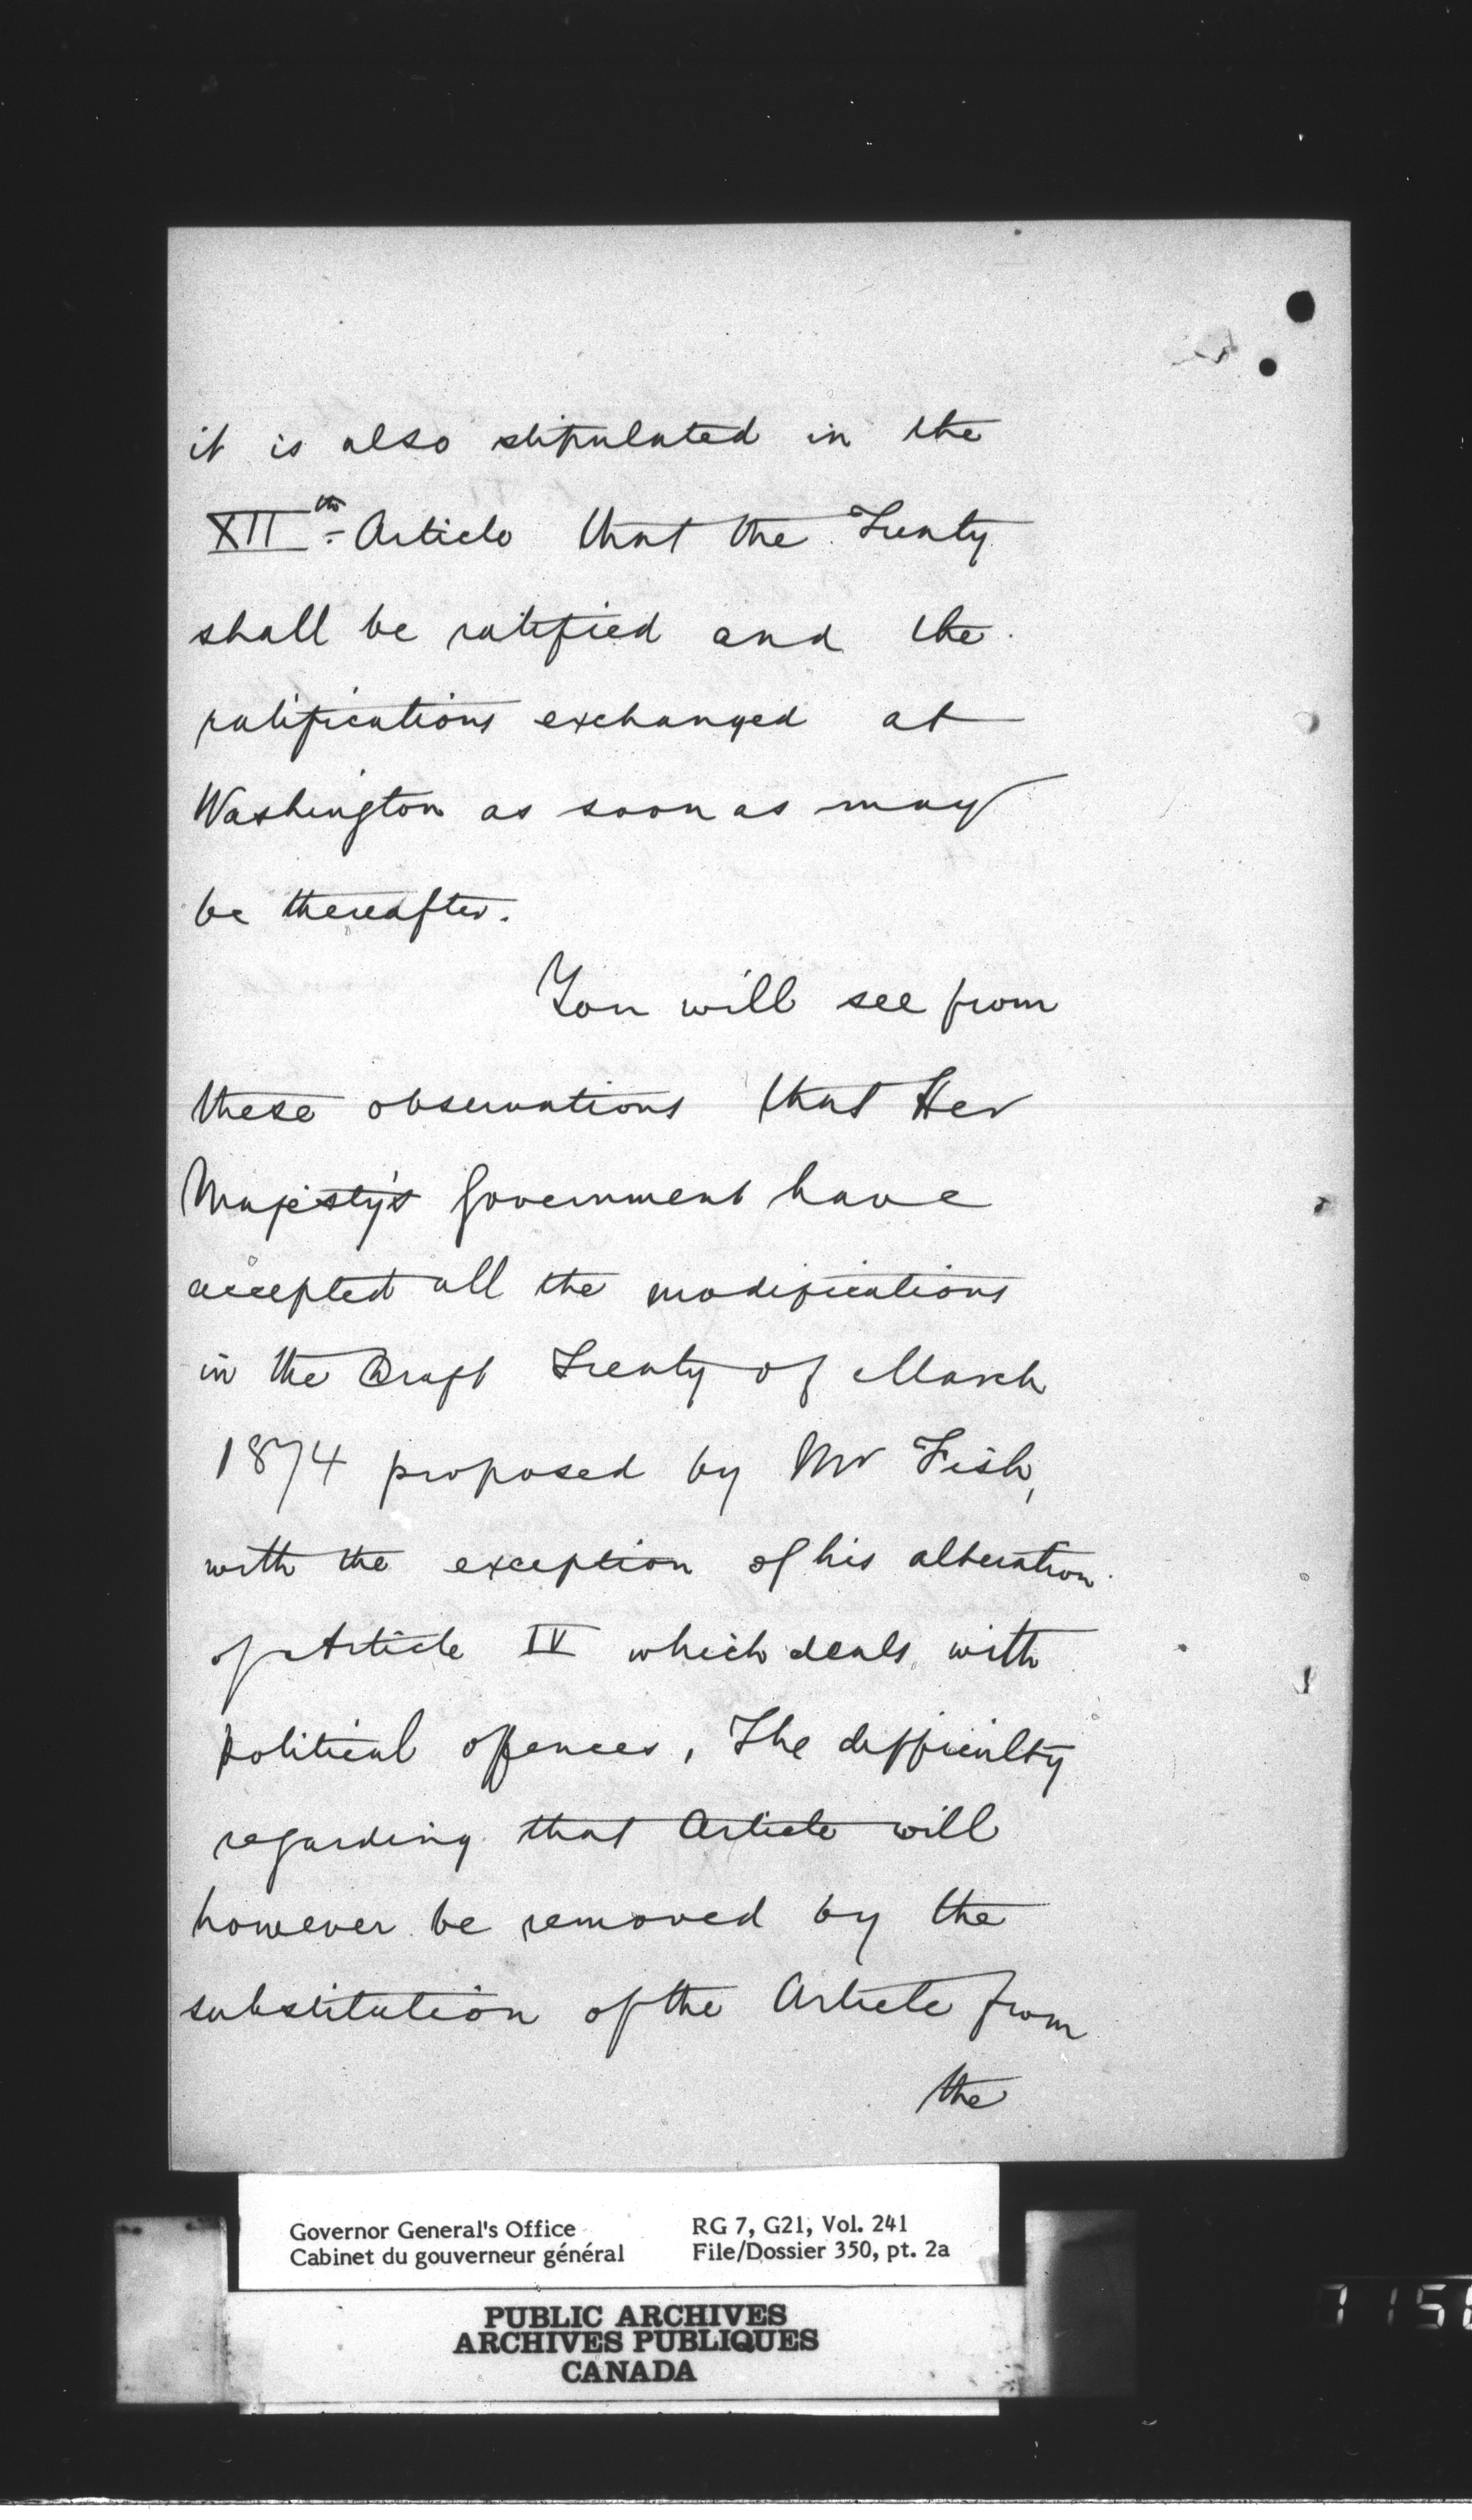 it is also stipulated in the
XIIth Article that the Treaty
shall be ratified and the
ratifications exchanged at
Washington as soon as may
be thereafter.
You will see from
these observations that Her
Majesty's Government have
accepted all the modifications
in the Draft Treaty of March
1874 proposed by Mr Fish,
with the exception of his alteration
of Article IV which deals with
political offences, The difficulty
regarding that Article will
however be removed by the
substitution of the Article from
the
Governor General's Office
Cabinet du gouverneur général
RG 7, G21, Vol. 241
File/Dossier 350, pt. 2a
PUBLIC ARCHIVES
ARCHIVES PUBLIQUES
CANADA